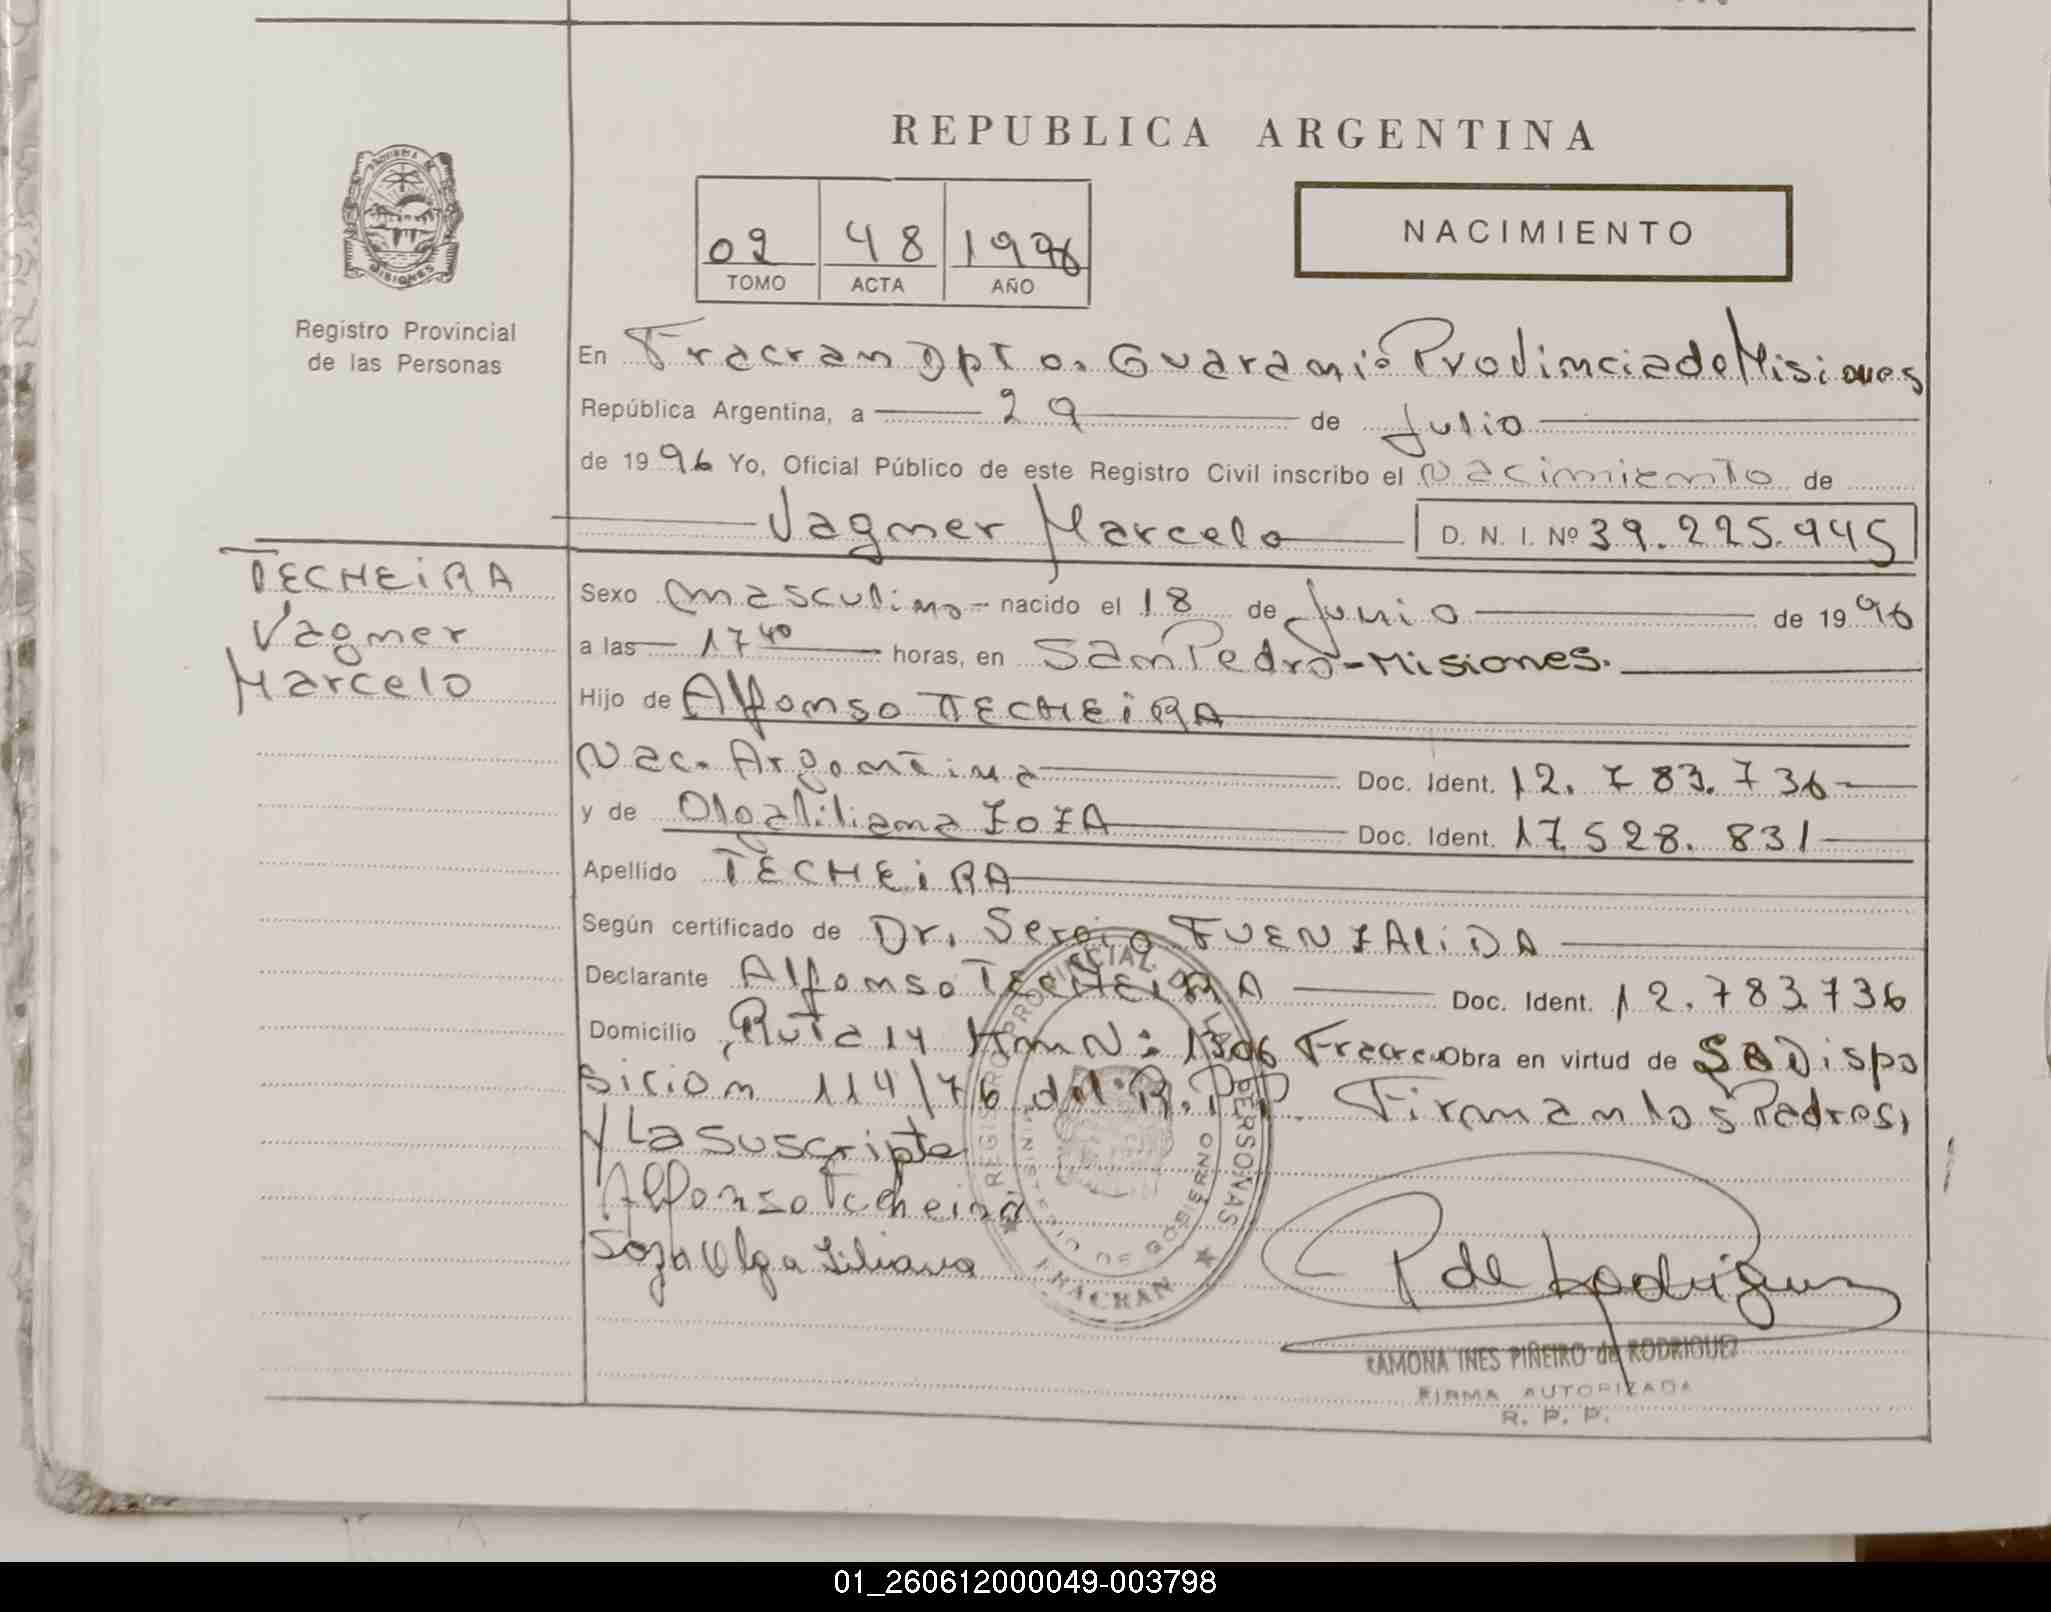 REPUBLICA ARGENTINA
NACIMIENTO
02 48 1996
TOMO ACTA AÑO
MISIONES
Registro Provincial
de las Personas
En Fracran Dpto. Guarani: Provincia de Misiones
República Argentina, a 29 de Julio
de 1996 Yo, Oficial Público de este Registro Civil inscribo el Nacimiento de
Vagner Marcelo D. N. I. Nº 39.225.945
TECHEiRA
Vagner
Marcelo
Sexo masculino - nacido el 18 de Junio de 1996
a las 17 40 horas, en San Pedro - Misiones.
Hijo de Alfonso TECHEiRA
Nac. Argentina Doc. Ident. 12.783.736
y de Olga Liliana ZOZA Doc. Ident. 17.528.831
Apellido TECHEiRA
Según certificado de Dr. Sergio FUENZALiDA
Declarante Alfonso TECHEiRA Doc. Ident. 12.783.736
Domicilio Ruta 14 Km Nº 1306 Fracran Obra en virtud de Dispo
sicion 114/76 del R.P.P. Firman los Padres,
y La suscripta
Alfonso Techeira
Soza Olga Liliana
P de Rodriguez
REGISTRO PROVINCIAL DE LAS PERSONAS
FRACRAN
RAMONA INES PIÑEIRO de RODRIGUEZ
FIRMA AUTORIZADA
R. P. P.
01_260612000049-003798